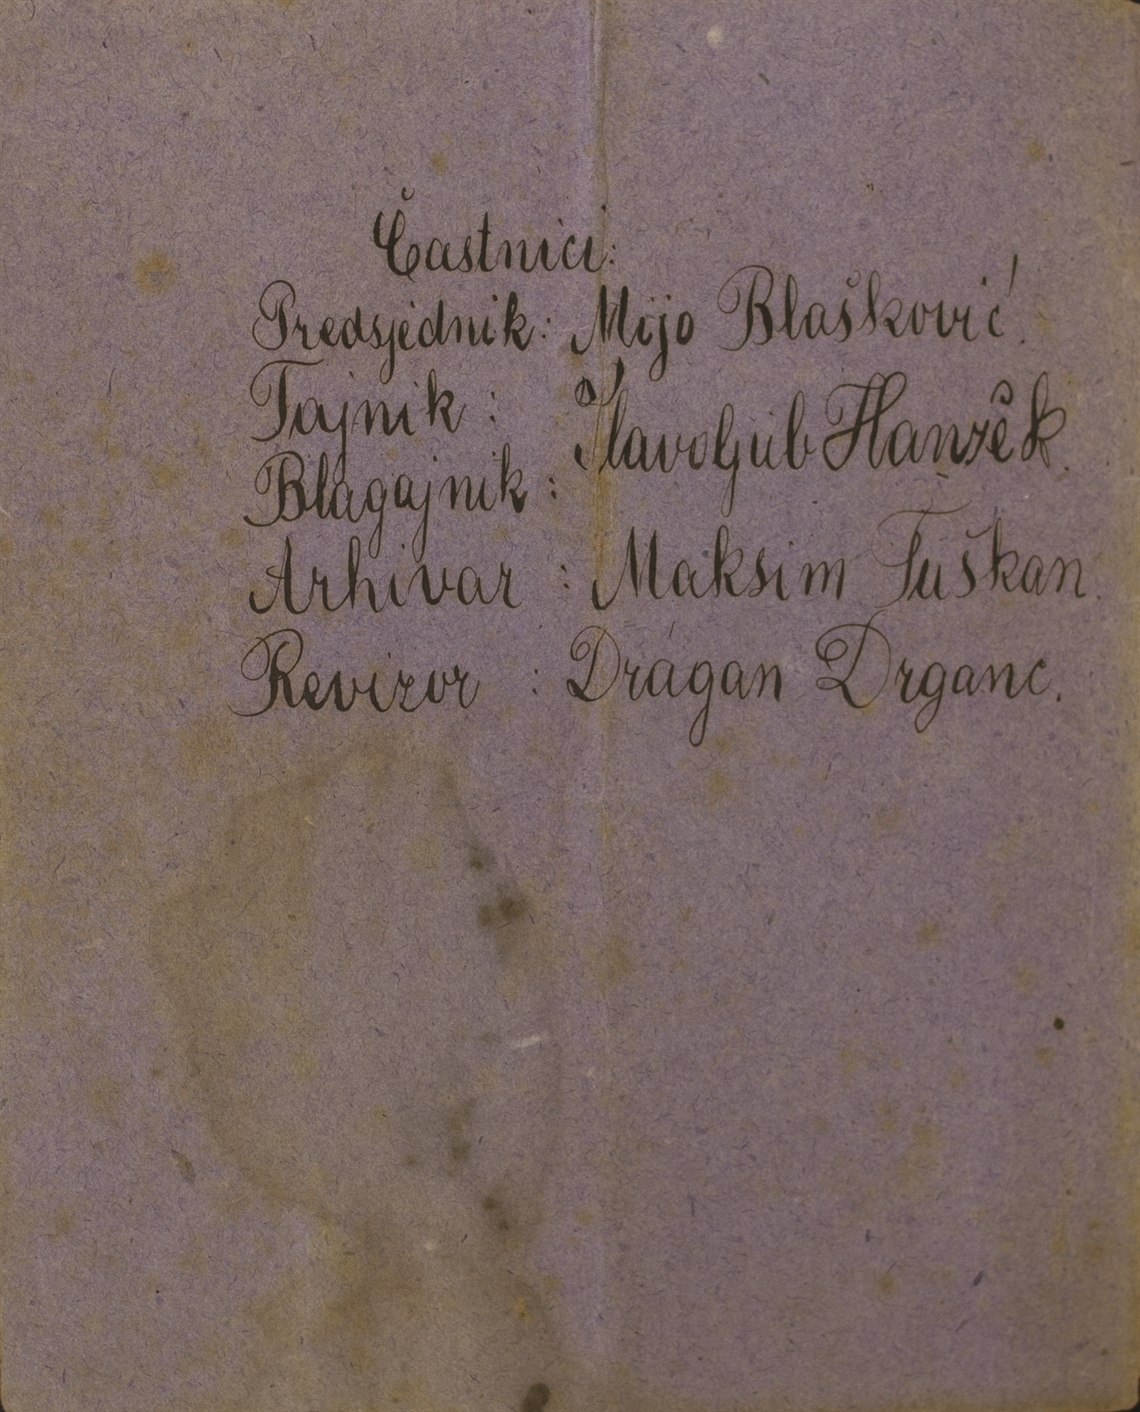 Častnici:
Predsjednik: Mijo Blašković.
Tajnik :
Slavoljub Hanžek.
Blagajnik :
Arhivar : Maksim Tuškan.
Revizor : Dragan Drganc.